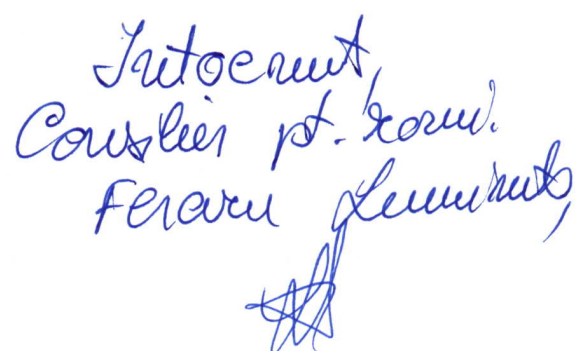 Intocmit,
Consilier pt. romi.
Feraru Luminita,